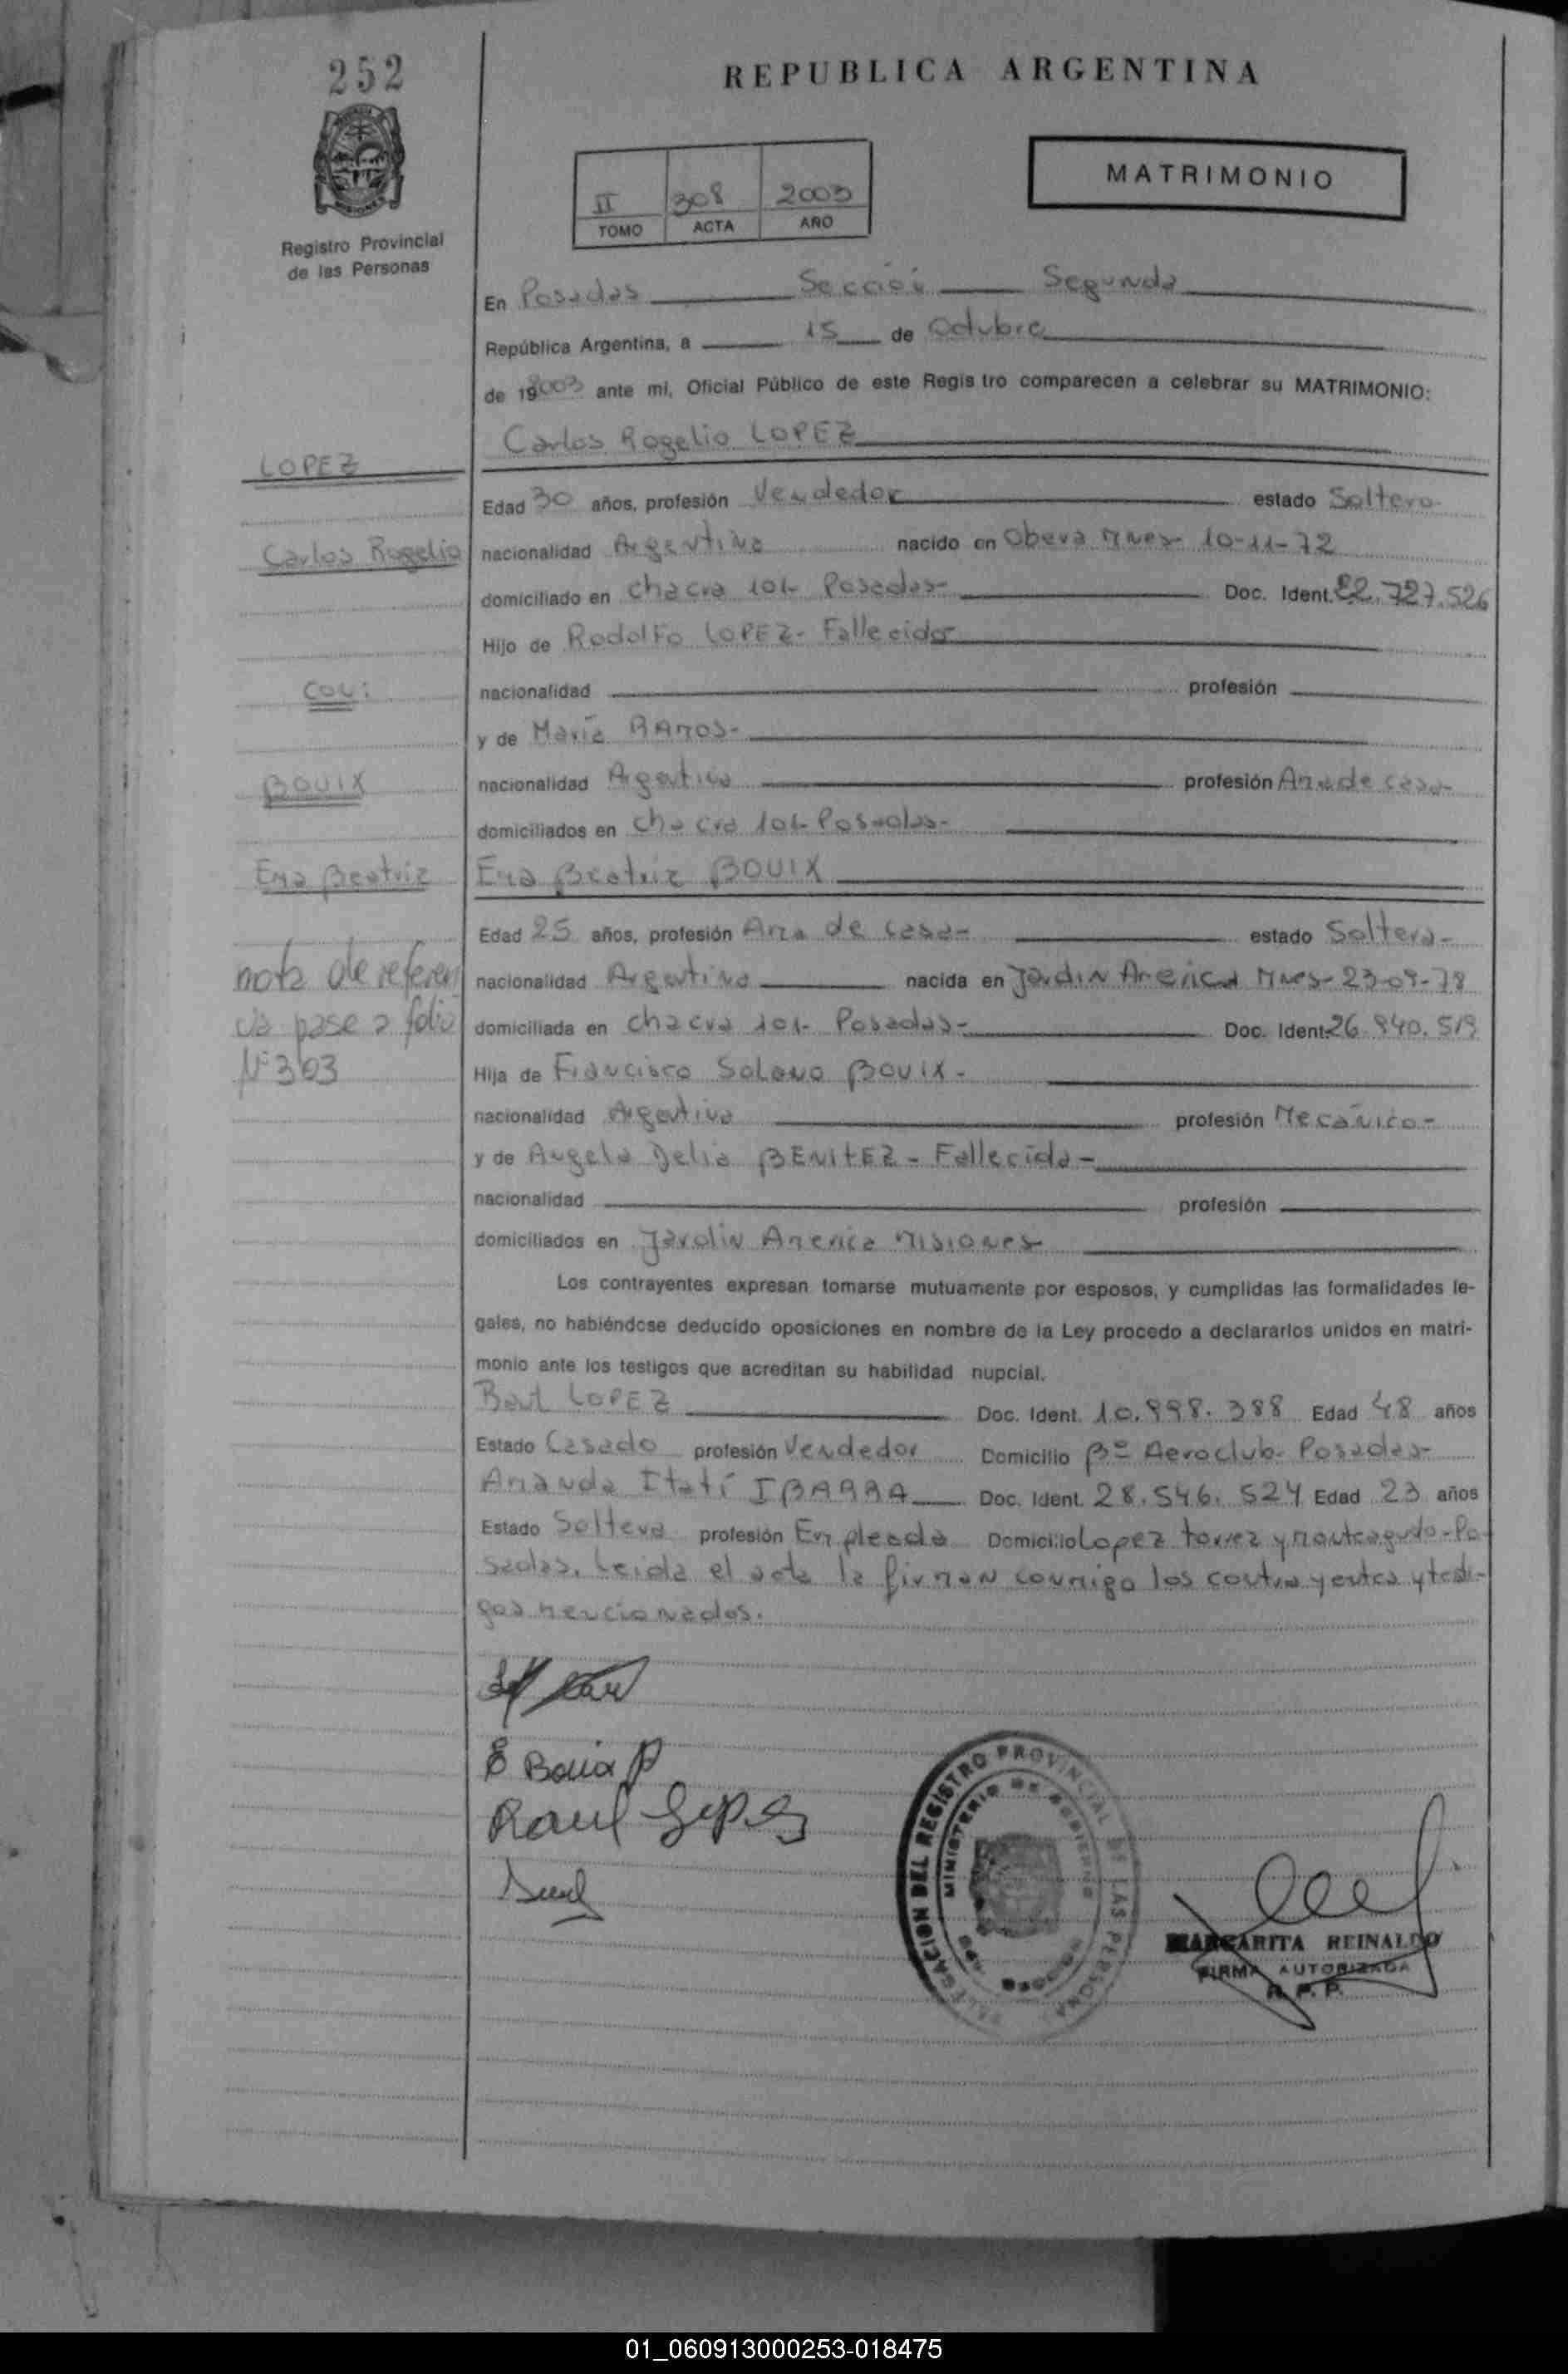 252
REPUBLICA ARGENTINA
MATRIMONIO
II 308 2003
TOMO ACTA AÑO
Registro Provincial
de las Personas
En Posadas Sección Segunda
República Argentina, a 15 de Octubre
de 192003 ante mi, Oficial Público de este Regis tro comparecen a celebrar su MATRIMONIO:
Carlos Rogelio LOPEZ
LOPEZ
Edad 30 años, profesión Vendedor estado Soltero-
Carlos Rogelio
nacionalidad Argentina nacido en Obera Mnes- 10-11-72
domiciliado en Chacra 101- Posadas- Doc. Ident. 22.727.526
Hijo de Rodolfo LOPEZ- Fallecido-
con:
nacionalidad profesión
y de María RAMOS-
BOUIX
nacionalidad Argentina profesión Ama de casa-
domiciliados en Chacra 101- Posadas-
Ema Beatriz
Ema Beatriz BOUIX
Edad 25 años, profesión Ama de casa- estado Soltera-
nota de referen
nacionalidad Argentina nacida en Jardin America Mnes- 23-09-78
cia pase a folio
domiciliada en Chacra 101- Posadas- Doc. Ident. 26.940.519
Nº 303
Hija de Francisco Solano BOUIX-
nacionalidad Argentina profesión Mecánico-
y de Angela Delia BENITEZ- Fallecida-
nacionalidad profesión
domiciliados en Jardin America Misiones-
Los contrayentes expresan tomarse mutuamente por esposos, y cumplidas las formalidades le-
gales, no habiéndose deducido oposiciones en nombre de la Ley procedo a declararlos unidos en matri-
monio ante los testigos que acreditan su habilidad nupcial.
Raul LOPEZ Doc. Ident. 10.998.388 Edad 48 años
Estado Casado profesión Vendedor Domicilio Bº Aeroclub- Posadas-
Amanda Itatí IBARRA Doc. Ident. 28.546.524 Edad 23 años
Estado Soltera profesión Empleada Domicilio Lopez torrez y monteagudo-Po-
sadas. Leida el acta la firman conmigo los contrayentes y testi-
gos mencionados.
E Bouix
Raul Lopez
DELEGACION DEL REGISTRO PROVINCIAL DE LAS PERSONAS
MINISTERIO DE GOBIERNO
MARGARITA REINALDO
FIRMA AUTORIZADA
R. P. P.
01_060913000253-018475